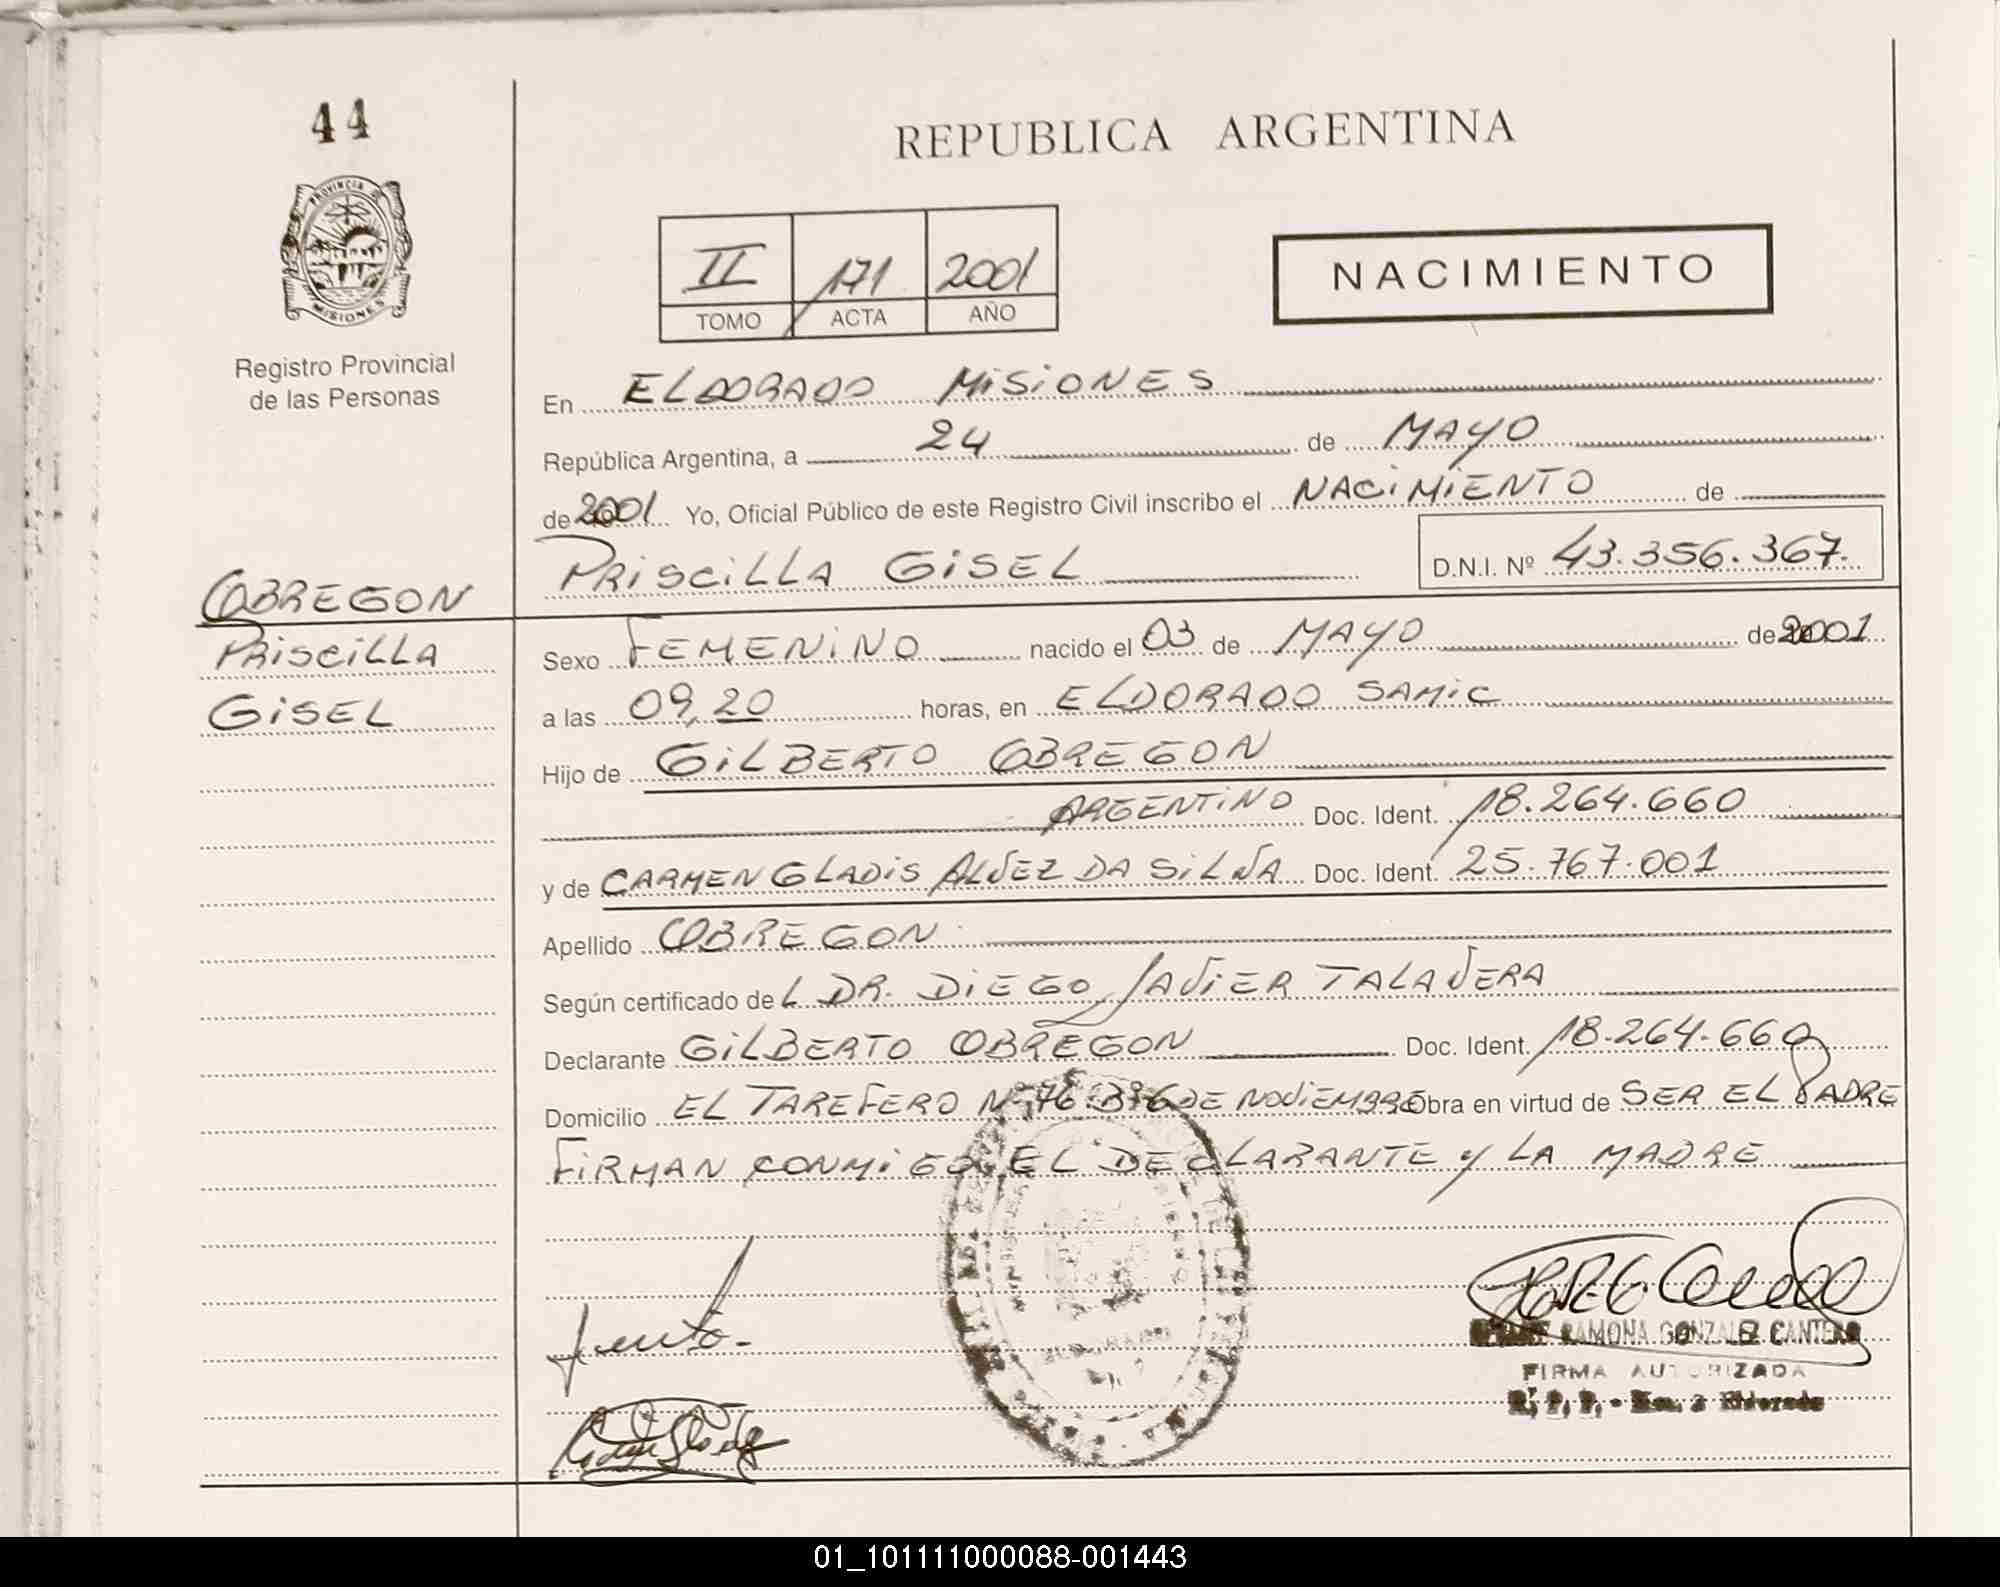 44
PROVINCIA DE
MISIONES
Registro Provincial
de las Personas
OBREGON
PRISCILLA
GISEL
REPUBLICA ARGENTINA
II 171 2001
TOMO ACTA AÑO
NACIMIENTO
En ELDORADO MISIONES
República Argentina, a 24 de MAYO
de 2001 Yo, Oficial Público de este Registro Civil inscribo el NACIMIENTO de
PRISCILLA GISEL D.N.I. Nº 43.356.367.
Sexo FEMENINO nacido el 03 de MAYO de 2001
a las 09,20 horas, en ELDORADO SAMIC
Hijo de GILBERTO OBREGON
ARGENTINO Doc. Ident. 18.264.660
y de CARMEN GLADIS ALVEZ DA SILVA Doc. Ident. 25.767.001
Apellido OBREGON
Según certificado de L DR. DIEGO JAVIER TALAVERA
Declarante GILBERTO OBREGON Doc. Ident. 18.264.660
Domicilio EL TAREFERO Nº 76 Bº 6 DE NOVIEMBRE Obra en virtud de SER EL PADRE
FIRMAN CONMIGO EL DECLARANTE y LA MADRE
RAMONA GONZALEZ CANTERO
FIRMA AUTORIZADA
R. P. P. - Eldorado
01_101111000088-001443